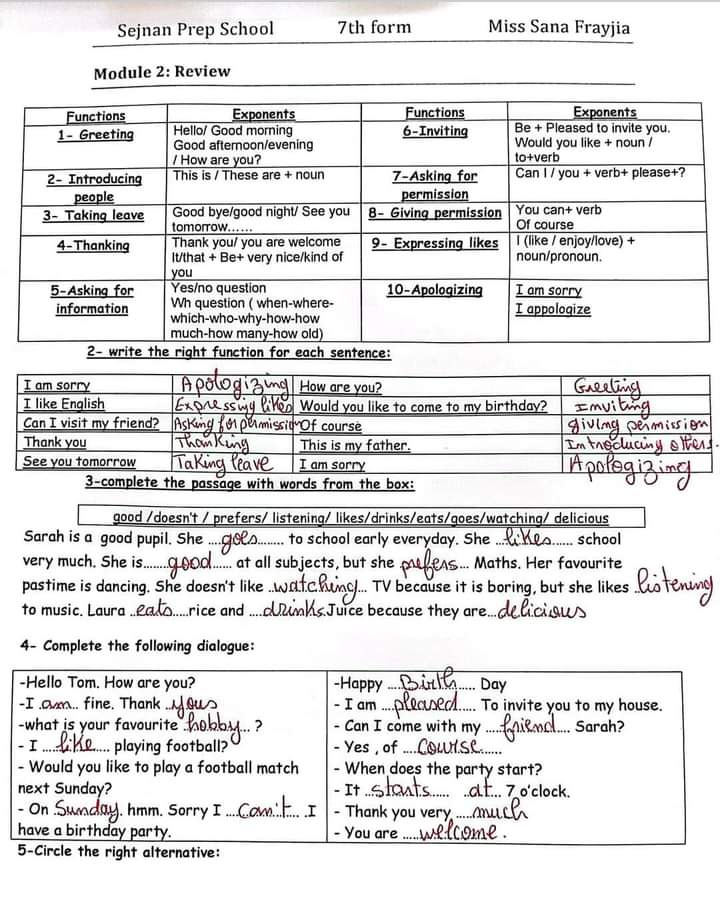 Sejnan Prep School 7th form Miss Sana Frayjia
Module 2: Review
Functions Exponents Functions Exponents
1- Greeting Hello/ Good morning
Good afternoon/evening
/ How are you? 6-Inviting Be + Pleased to invite you.
Would you like + noun /
to+verb
2- Introducing
people This is / These are + noun 7-Asking for
permission Can I / you + verb+ please+?
3- Taking leave Good bye/good night/ See you
tomorrow...... 8- Giving permission You can+ verb
Of course
4-Thanking Thank you/ you are welcome
It/that + Be+ very nice/kind of
you 9- Expressing likes I (like / enjoy/love) +
noun/pronoun.
5-Asking for
information Yes/no question
Wh question ( when-where-
which-who-why-how-how
much-how many-how old) 10-Apologizing I am sorry
I appologize
2- write the right function for each sentence:
I am sorry Apologizing How are you? Greeting
I like English Expressing likes Would you like to come to my birthday? Inviting
Can I visit my friend? Asking for permission Of course giving permission
Thank you Thanking This is my father. Introducing others.
See you tomorrow Taking leave I am sorry Apologizing
3-complete the passage with words from the box:
good /doesn't / prefers/ listening/ likes/drinks/eats/goes/watching/ delicious
Sarah is a good pupil. She ....goes........ to school early everyday. She ...likes...... school
very much. She is.......good...... at all subjects, but she prefers... Maths. Her favourite
pastime is dancing. She doesn't like ..watching... TV because it is boring, but she likes listening
to music. Laura ..eats.....rice and ....drinks.Juice because they are...delicious
4- Complete the following dialogue:
-Hello Tom. How are you?
-I .am.. fine. Thank ..yous
-what is your favourite .hobby... ?
- I ....like.... playing football?
- Would you like to play a football match
next Sunday?
- On .Sunday. hmm. Sorry I ...can't.... .I
have a birthday party.
-Happy ....Birth..... Day
- I am ....pleased.... To invite you to my house.
- Can I come with my .....friend.... Sarah?
- Yes , of ....course......
- When does the party start?
- It ..starts...... ..at... 7 o'clock.
- Thank you very .....much
- You are .....welcome.
5-Circle the right alternative: